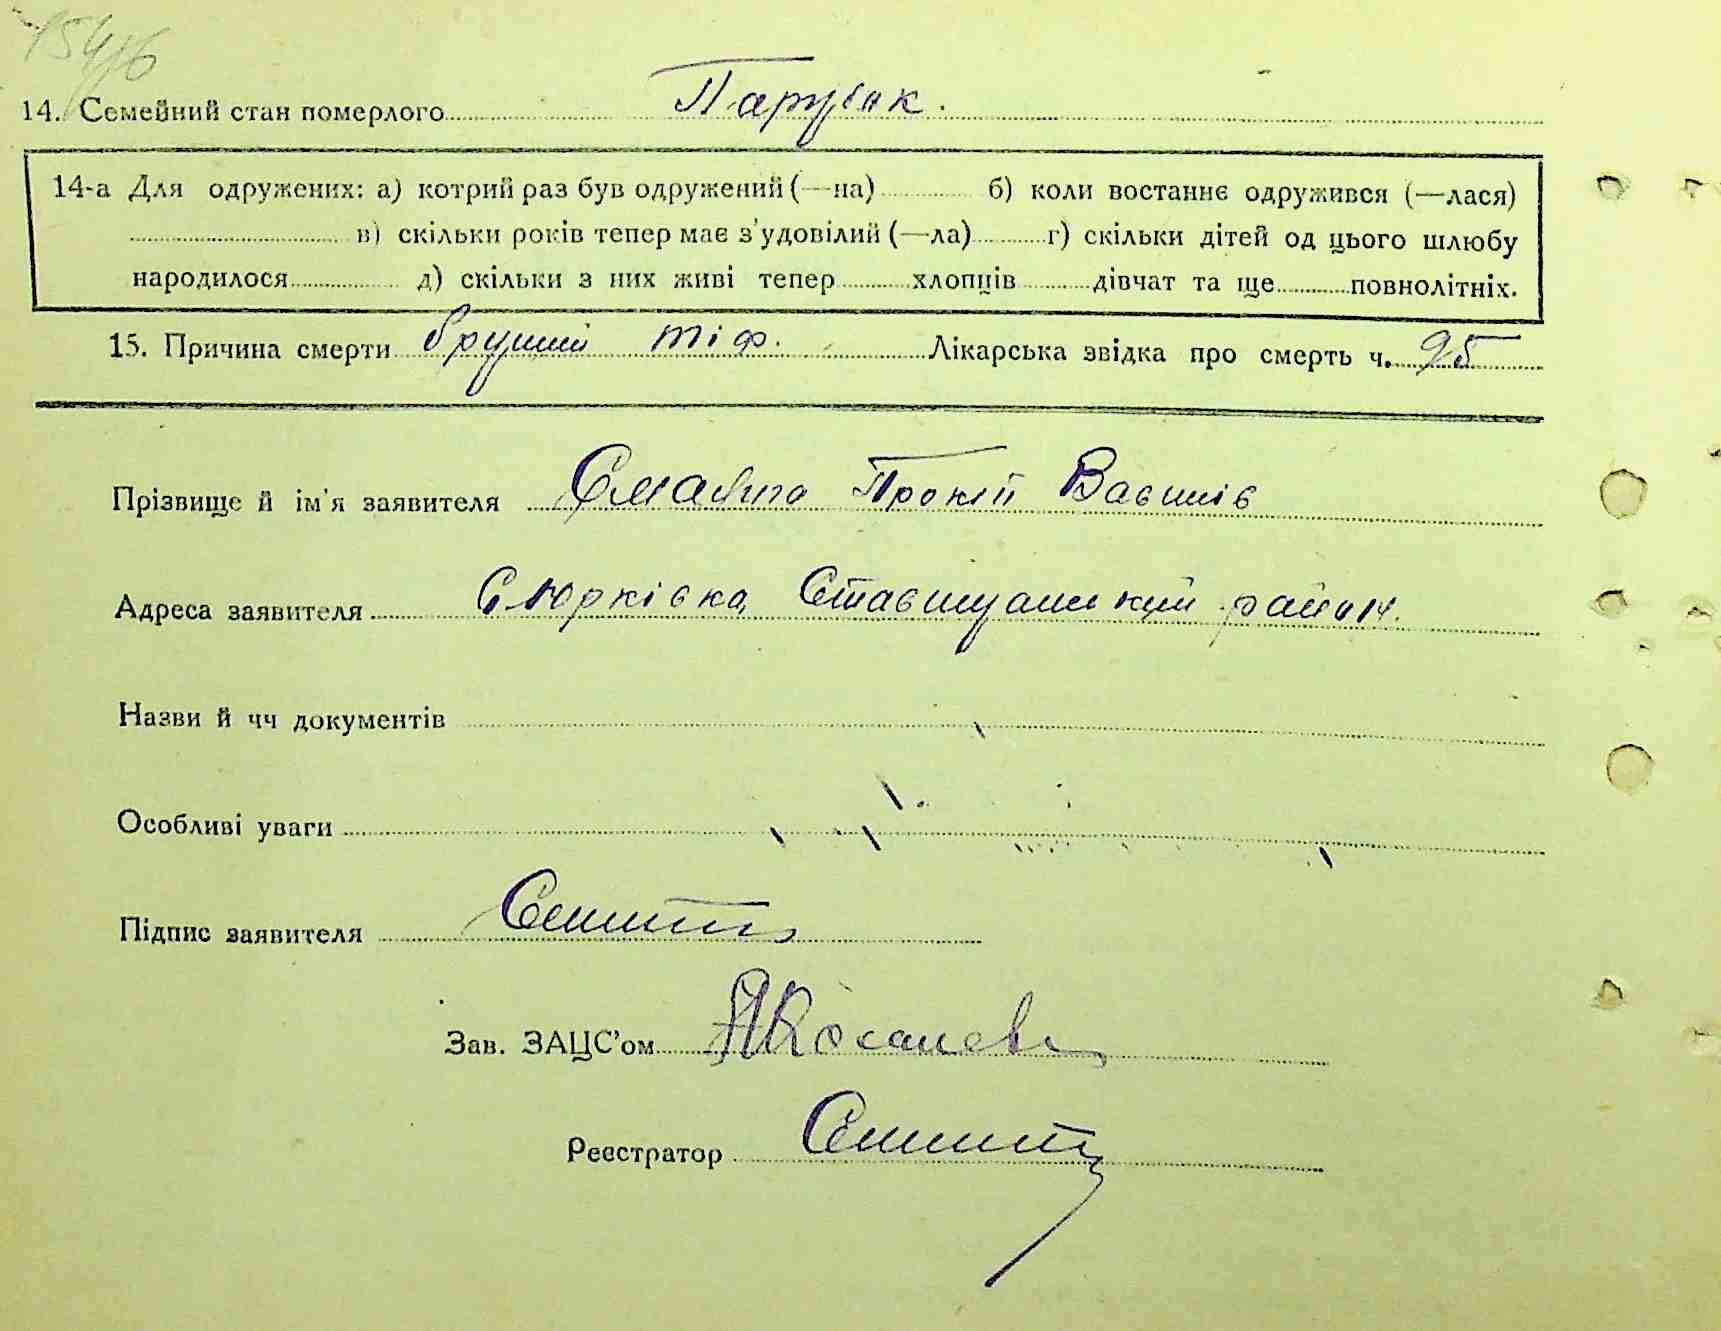 154/6
14. Семейний стан померлого Парубок.
14-а Для одружених: а) котрий раз був одружений (—на) б) коли востаннє одружився (—лася)
в) скільки років тепер має з'удовілий (—ла) г) скільки дітей од цього шлюбу
народилося д) скільки з них живі тепер хлопців дівчат та ще повнолітніх.
15. Причина смерти брушний тіф. Лікарська звідка про смерть ч. 95
Прізвище й ім'я заявителя Прокіп
Адреса заявителя Ставищанський район.
Назви й чч документів
Особливі уваги
Підпис заявителя
Зав. ЗАЦС'ом
Реєстратор